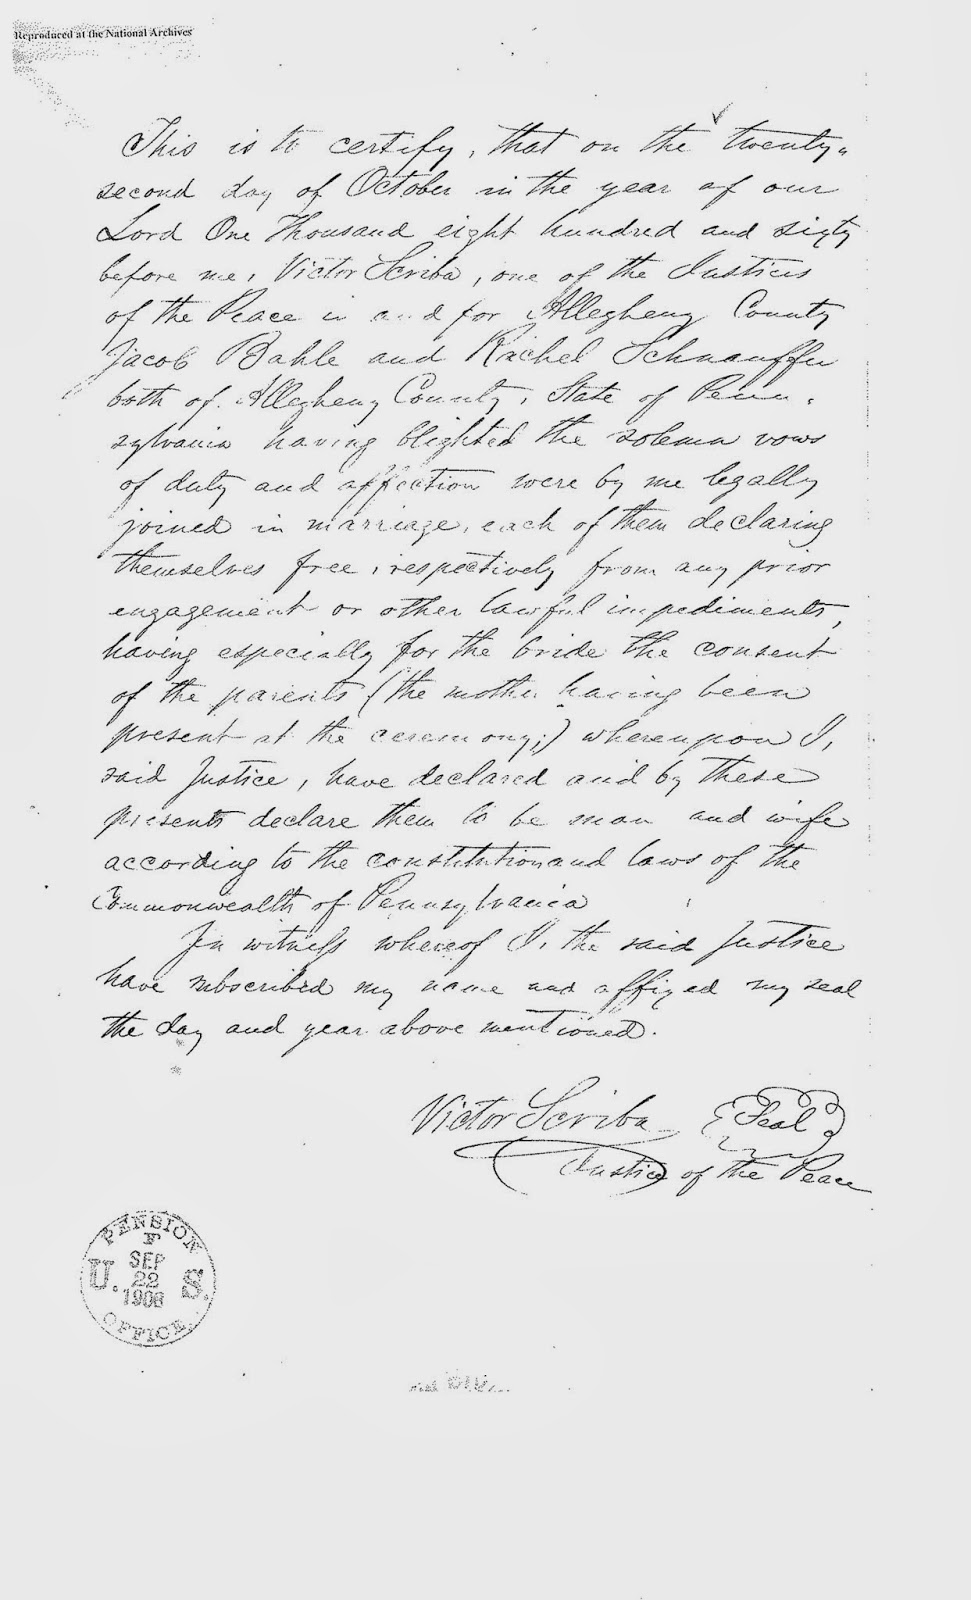 Reproduced at the National Archives
This is to certify, that on the twenty-
second day of October in the year of our
Lord One Thousand eight hundred and sixty
before me, Victor Scriba, one of the Justices
of the Peace in and for Allegheny County
Jacob Bahle and Rachel Schnauffer
both of Allegheny County, State of Penn-
sylvania having blighted the solemn vows
of duty and affection were by me legally
joined in marriage, each of them declaring
themselves free, respectively from any prior
engagement or other lawful impediments,
having especially for the bride the consent
of the parents (the mother having been
present at the ceremony;) whereupon I,
said Justice, have declared and by these
presents declare them to be man and wife
according to the constitution and laws of the
Commonwealth of Pennsylvania
In witness whereof I, the said Justice
have subscribed my name and affixed my seal
the day and year above mentioned.
Victor Scriba Seal
Justice of the Peace
PENSION
F
SEP
U. 22 S.
1906
OFFICE